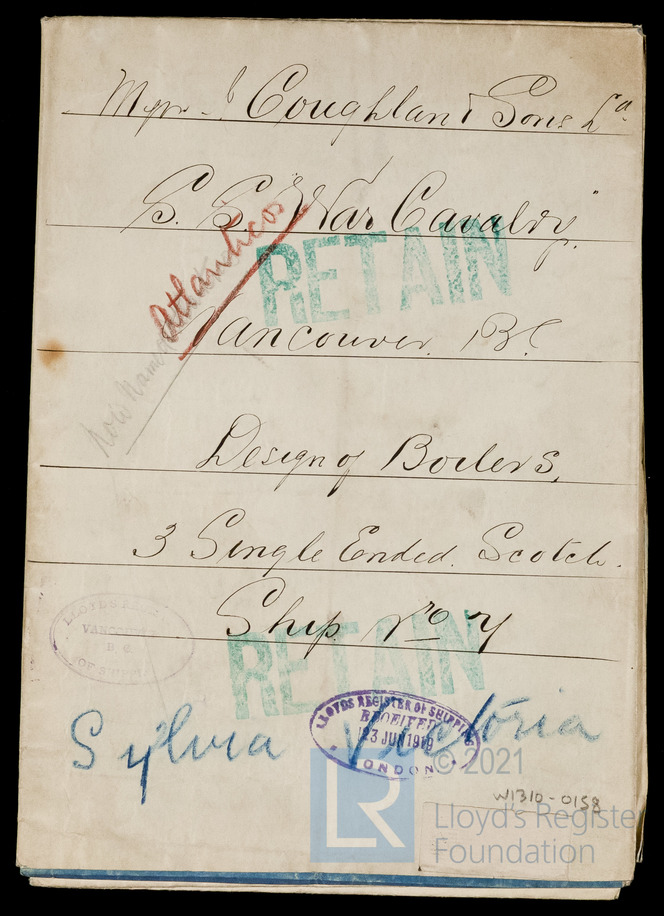 Messrs J Coughlan & Sons Ld.
S. S. "War Cavalry"
RETAIN
Now Named Atlanticos
Vancouver. B.C
Design of Boilers,
3 Single Ended. Scotch.
Ship No 7
RETAIN
LLOYDS
VANCOUVER
B. C.
OF SHIPPING
Sylvia Victoria
LLOYDS REGISTER OF SHIPPING
RECEIVED
23 JUN 1919
LONDON
W1310-0158
© 2021
LR
Lloyd's Register
Foundation